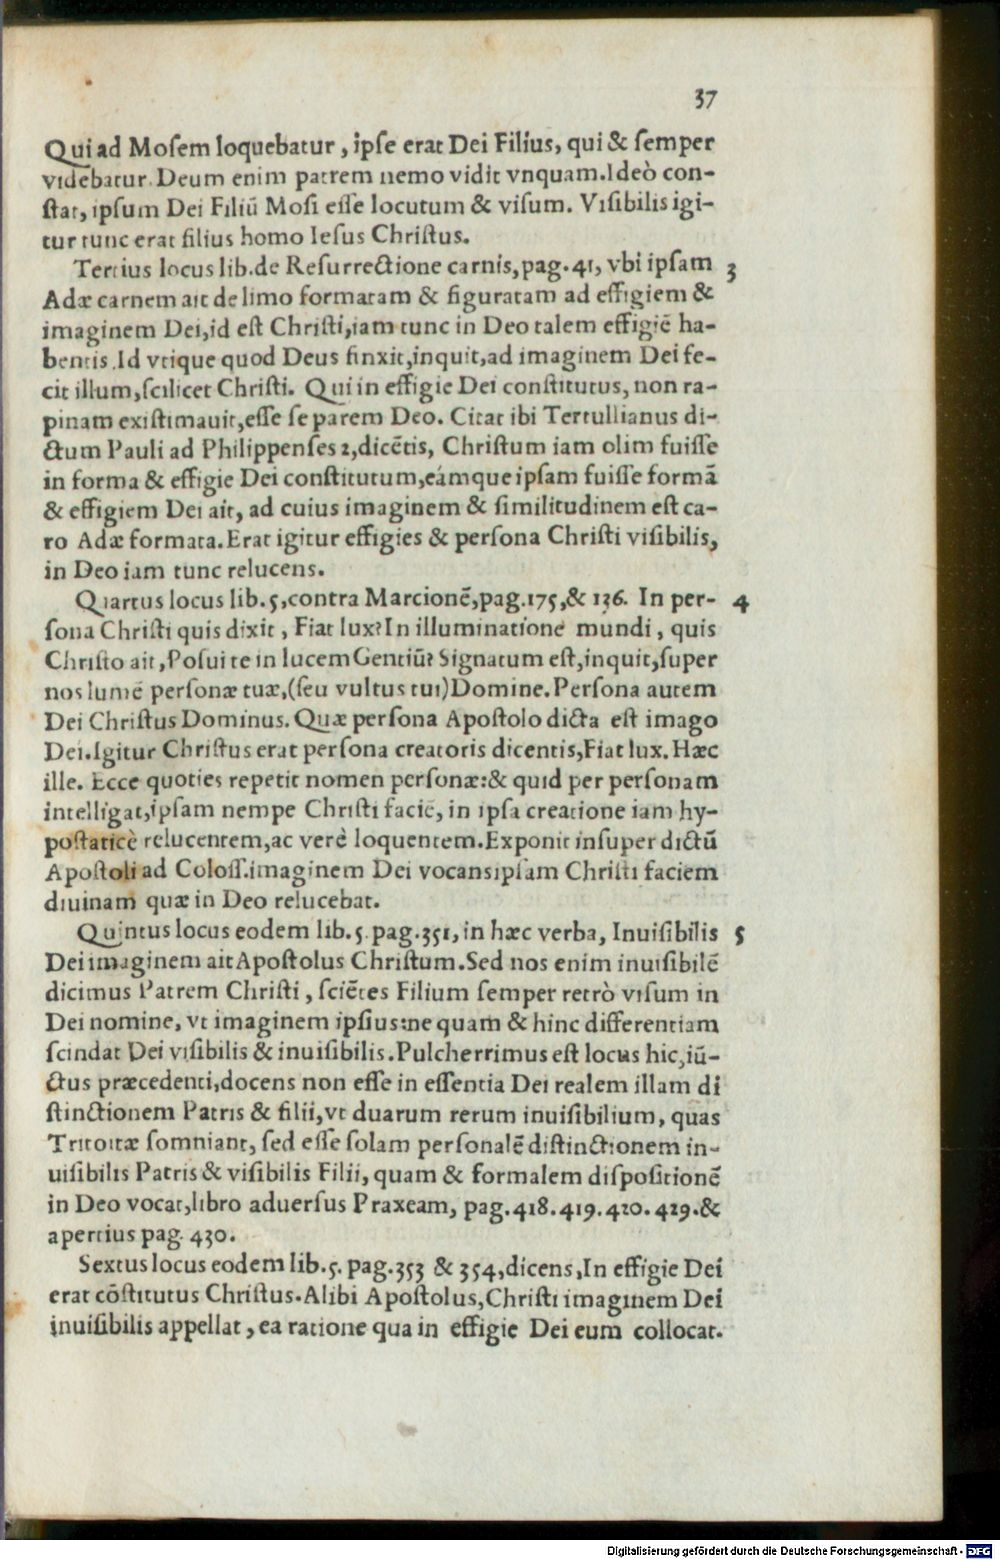 37
Qui ad Moſem loquebatur, ipſe erat Dei Filius, qui & ſemper
videbatur. Deum enim patrem nemo vidit vnquam. Ideò con-
ſtat, ipſum Dei Filiũ Moſi eſſe locutum & viſum. Viſibilis igi-
tur tunc erat filius homo Ieſus Chriſtus.
Tertius locus lib. de Reſurrectione carnis, pag. 41, vbi ipſam 3
Adæ carnem ait de limo formatam & figuratam ad effigiem &
imaginem Dei, id eſt Chriſti, iam tunc in Deo talem effigiẽ ha-
bentis. Id vtique quod Deus finxit, inquit, ad imaginem Dei fe-
cit illum, ſcilicet Chriſti. Qui in effigie Dei conſtitutus, non ra-
pinam exiſtimauit, eſſe ſe parem Deo. Citat ibi Tertullianus di-
ctum Pauli ad Philippenſes 2, dicẽtis, Chriſtum iam olim fuiſſe
in forma & effigie Dei conſtitutum, eámque ipſam fuiſſe formã
& effigiem Dei ait, ad cuius imaginem & ſimilitudinem eſt ca-
ro Adæ formata. Erat igitur effigies & perſona Chriſti viſibilis,
in Deo iam tunc relucens.
Quartus locus lib. 5, contra Marcionẽ, pag. 175, & 136. In per- 4
ſona Chriſti quis dixit, Fiat lux? In illuminatione mundi, quis
Chriſto ait, Poſui te in lucem Gentiũ? Signatum eſt, inquit, ſuper
nos lumẽ perſonæ tuæ, (ſeu vultus tui) Domine. Perſona autem
Dei Chriſtus Dominus. Quæ perſona Apoſtolo dicta eſt imago
Dei. Igitur Chriſtus erat perſona creatoris dicentis, Fiat lux. Hæc
ille. Ecce quoties repetit nomen perſonæ: & quid per perſonam
intelligat, ipſam nempe Chriſti faciẽ, in ipſa creatione iam hy-
poſtaticè relucentem, ac verè loquentem. Exponit inſuper dictũ
Apoſtoli ad Coloſſ. imaginem Dei vocans ipſam Chriſti faciem
diuinam quæ in Deo relucebat.
Quintus locus eodem lib. 5. pag. 351, in hæc verba, Inuiſibilis 5
Dei imaginem ait Apoſtolus Chriſtum. Sed nos enim inuiſibilẽ
dicimus Patrem Chriſti, ſciẽtes Filium ſemper retrò viſum in
Dei nomine, vt imaginem ipſius: ne quam & hinc differentiam
ſcindat Dei viſibilis & inuiſibilis. Pulcherrimus eſt locus hic, iũ-
ctus præcedenti, docens non eſſe in eſſentia Dei realem illam di
ſtinctionem Patris & filii, vt duarum rerum inuiſibilium, quas
Tritoitæ ſomniant, ſed eſſe ſolam perſonalẽ diſtinctionem in-
uiſibilis Patris & viſibilis Filii, quam & formalem diſpoſitionẽ
in Deo vocat, libro aduerſus Praxeam, pag. 418. 419. 420. 429. &
apertius pag. 430.
Sextus locus eodem lib. 5. pag. 353 & 354, dicens, In effigie Dei
erat cõſtitutus Chriſtus. Alibi Apoſtolus, Chriſti imaginem Dei
inuiſibilis appellat, ea ratione qua in effigie Dei eum collocat.
Digitalisierung gefördert durch die Deutsche Forschungsgemeinschaft - DFG